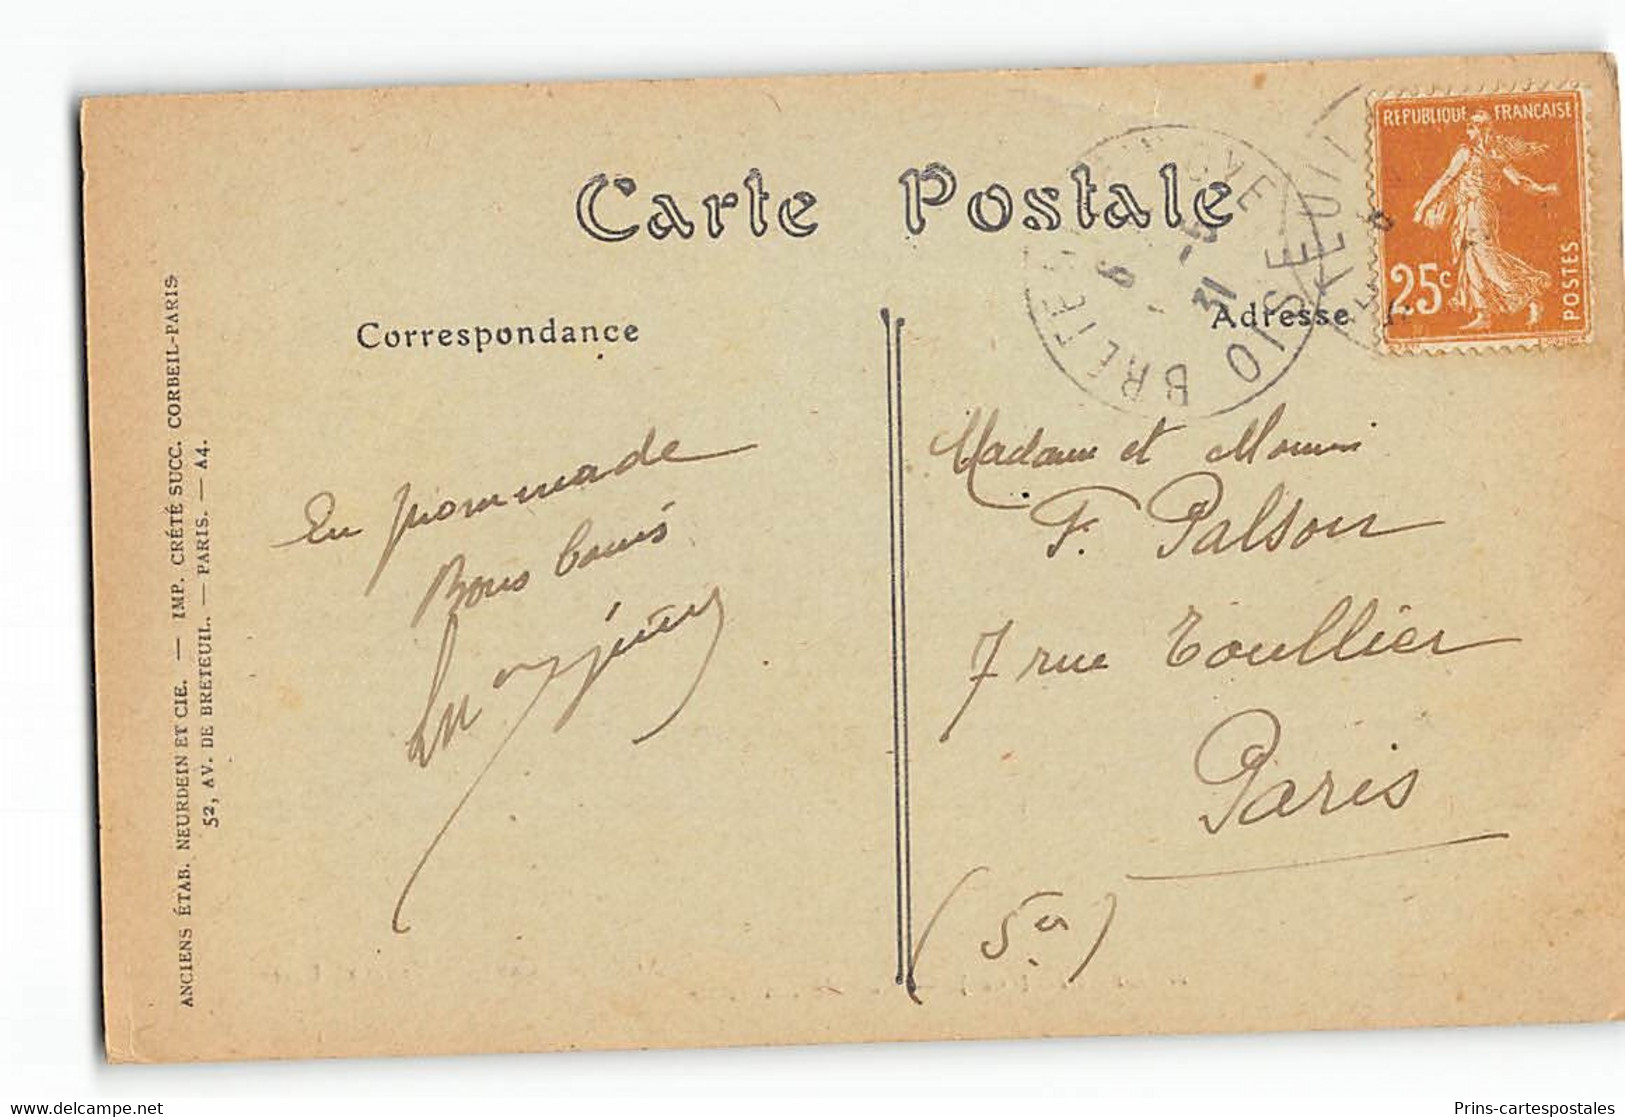 Carte Postale
Correspondance
Adresse
REPUBLIQUE FRANÇAISE
25c
POSTES
OISE
31
En prommade
Bons
Madame et
F. Palson
7 rue Toullier
Paris
(5er)
ANCIENS ÉTAB. NEURDEIN ET CIE. — IMP. CRÉTÉ SUCC. CORBEIL-PARIS
52, AV. DE BRETEUIL. — PARIS. — A4.
www.delcampe.net
Prins-cartespostales